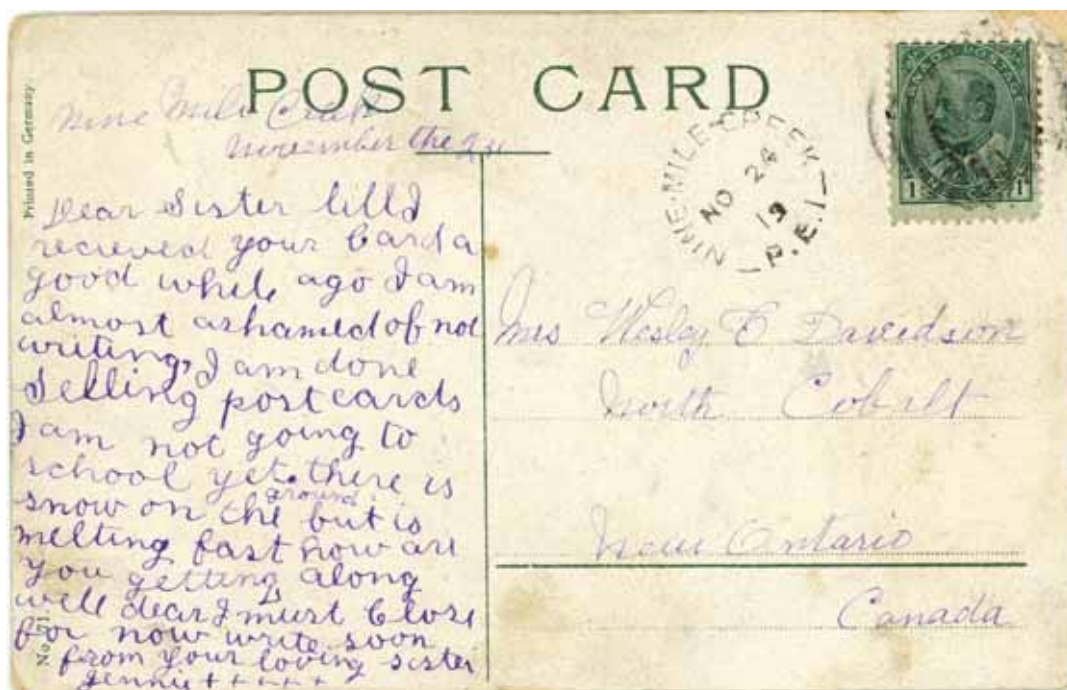 POST CARD
Printed in Germany
Nine Mile Creek
November the
Dear Sister lill I
recieved your Card a
good while ago I am
almost ashamed of not
writing, I am done
Selling post cards
I am not going to
school yet. there is
snow on the ground but is
melting fast how are
you getting along
well dear I must Close
for now write soon
from your loving sister
Jennie + + + + +
No.
NINE-MILE-CREEK
NO 24
19
P.E.I
CANADA POSTAGE
1 1
Mrs Wesley E Davidson
North Cobalt
New Ontario
Canada